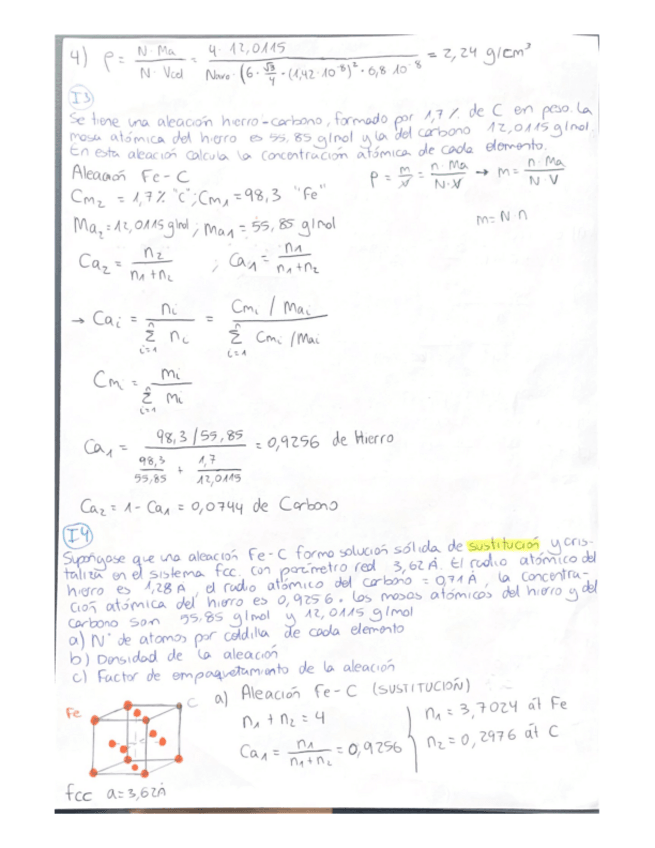 4) ρ = N·Ma / N·Vcel = 4·12,0115 / Navo·(6·√3/4·(1,42·10⁻⁸)²·6,8·10⁻⁸ = 2,24 g/cm³
I3
Se tiene una aleación hierro-carbono, formado por 1,7% de C en peso. La
masa atómica del hierro es 55,85 g/mol y la del carbono 12,0115 g/mol.
En esta aleación calcula la concentración atómica de cada elemento.
Aleación Fe-C
ρ = m/V = n·Ma/N·V → m = n·Ma/N·V
Cm₂ = 1,7% "C"; Cm₁ = 98,3 "Fe"
Ma₂ = 12,0115 g/mol; Ma₁ = 55,85 g/mol
m = N·n
Ca₂ = n₂/n₁+n₂ ; Ca₁ = n₁/n₁+n₂
→ Caᵢ = nᵢ / Σ nᵢ = Cmᵢ / Maᵢ / Σ Cmᵢ / Maᵢ
i=1 i=1
Cm = mᵢ / Σ mᵢ
i=1
Ca₁ = 98,3/55,85 / 98,3/55,85 + 1,7/12,0115 = 0,9256 de Hierro
Ca₂ = 1 - Ca₁ = 0,0744 de Carbono
I4
Supóngase que una aleación Fe-C forma solución sólida de sustitución y cris-
taliza en el sistema fcc. con parámetro red 3,62Å. El radio atómico del
hierro es 1,28Å, el radio atómico del carbono = 0,71Å, la concentra-
ción atómica del hierro es 0,9256. Las masas atómicas del hierro y del
carbono son 55,85 g/mol y 12,0115 g/mol
a) Nº de atomos por celdilla de cada elemento
b) Densidad de la aleación
c) Factor de empaquetamiento de la aleación
Fe
C
a) Aleación Fe-C (SUSTITUCIÓN)
n₁ + n₂ = 4
Ca₁ = n₁/n₁+n₂ = 0,9256
n₁ = 3,7024 át Fe
n₂ = 0,2976 át C
fcc a = 3,62Å